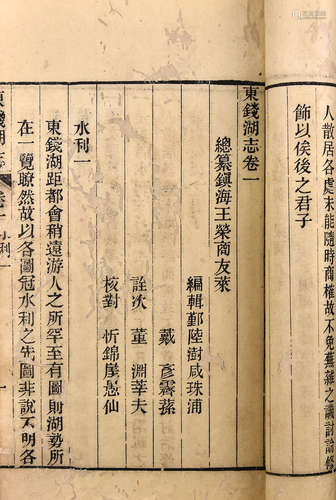 人散居各處未能隨時商榷故不免蕪雜之譏討論修
飾以俟後之君子
東錢湖志卷一
總纂鎮海王榮商友萊
編輯鄞陸澍咸珠浦
戴彥霽蓀
詮次董淵莘夫
核對忻錦崖悬仙
水利一
東錢湖距都會稍遠游人之所罕至有圖則湖勢所
在一覽瞭然故以各圖冠水利之先圖非說不明各
東錢湖志
卷一水利一
一